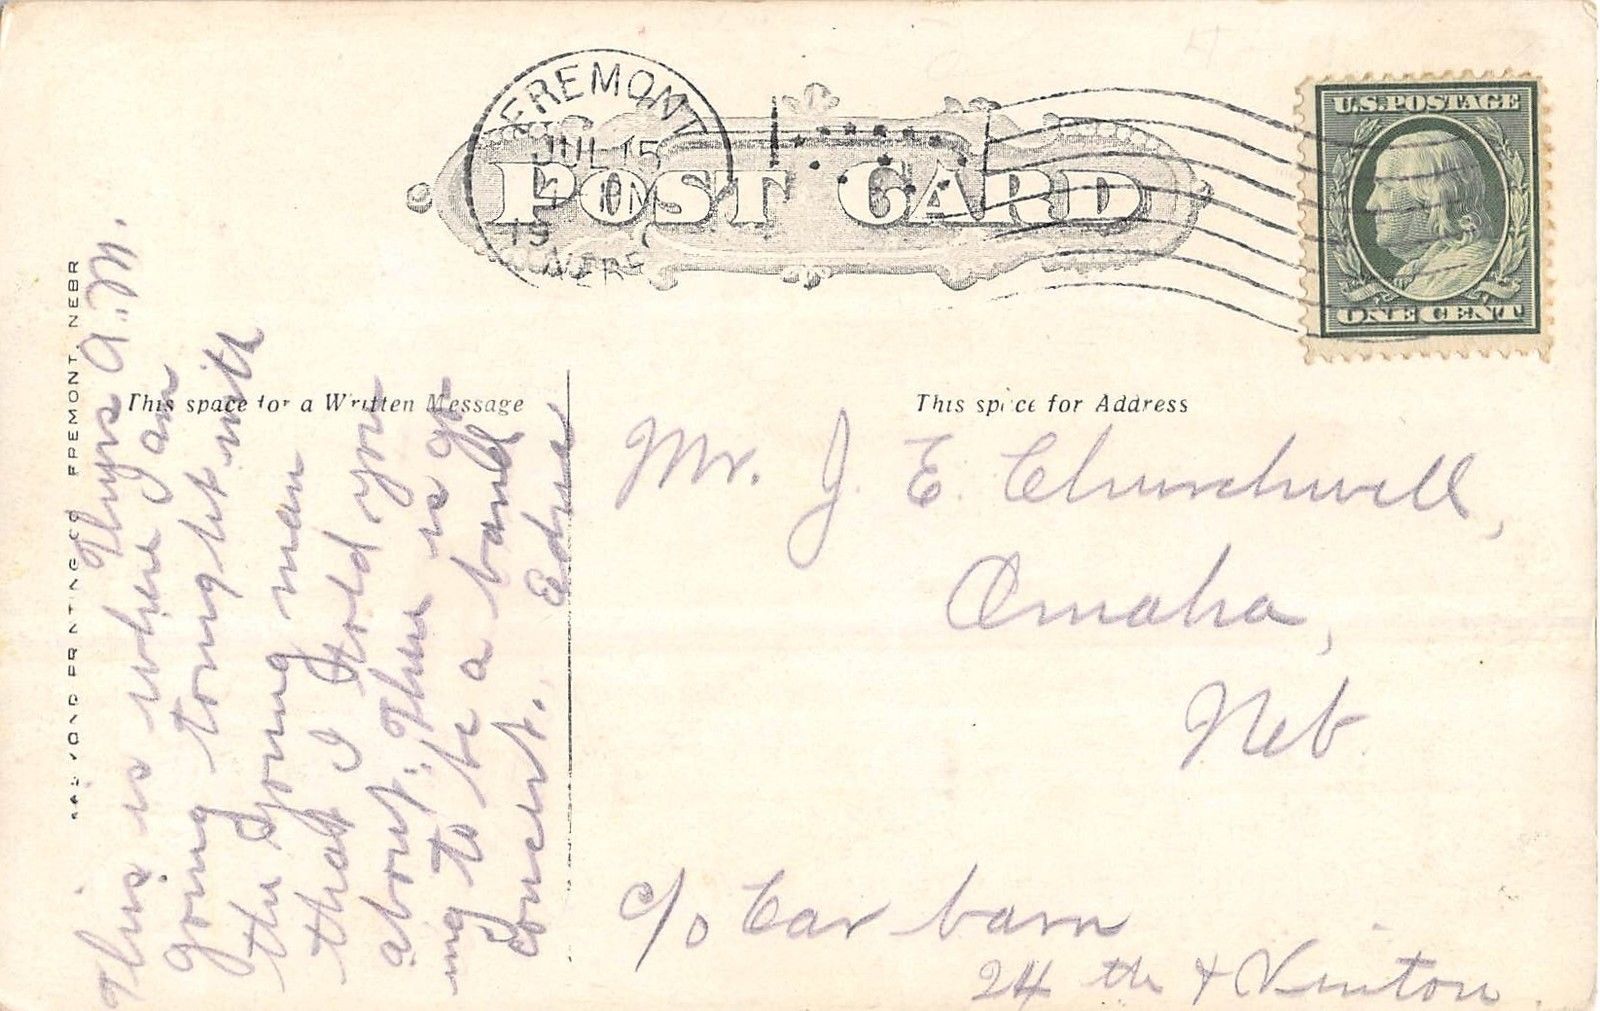 FREMONT
JUL 15
NEBR
POST CARD
U.S. POSTAGE
ONE CENT
This space for a Written Message
This space for Address
PRINTING CO. FREMONT, NEBR
Thurs A.M.
This is where I am
going tonight with
the young man
that I told you
about. There is go
ing to be a band
concert. Edna
Mr. J. E. Churchwell,
Omaha,
Neb.
c/o Car barn
24 th & Vinton.